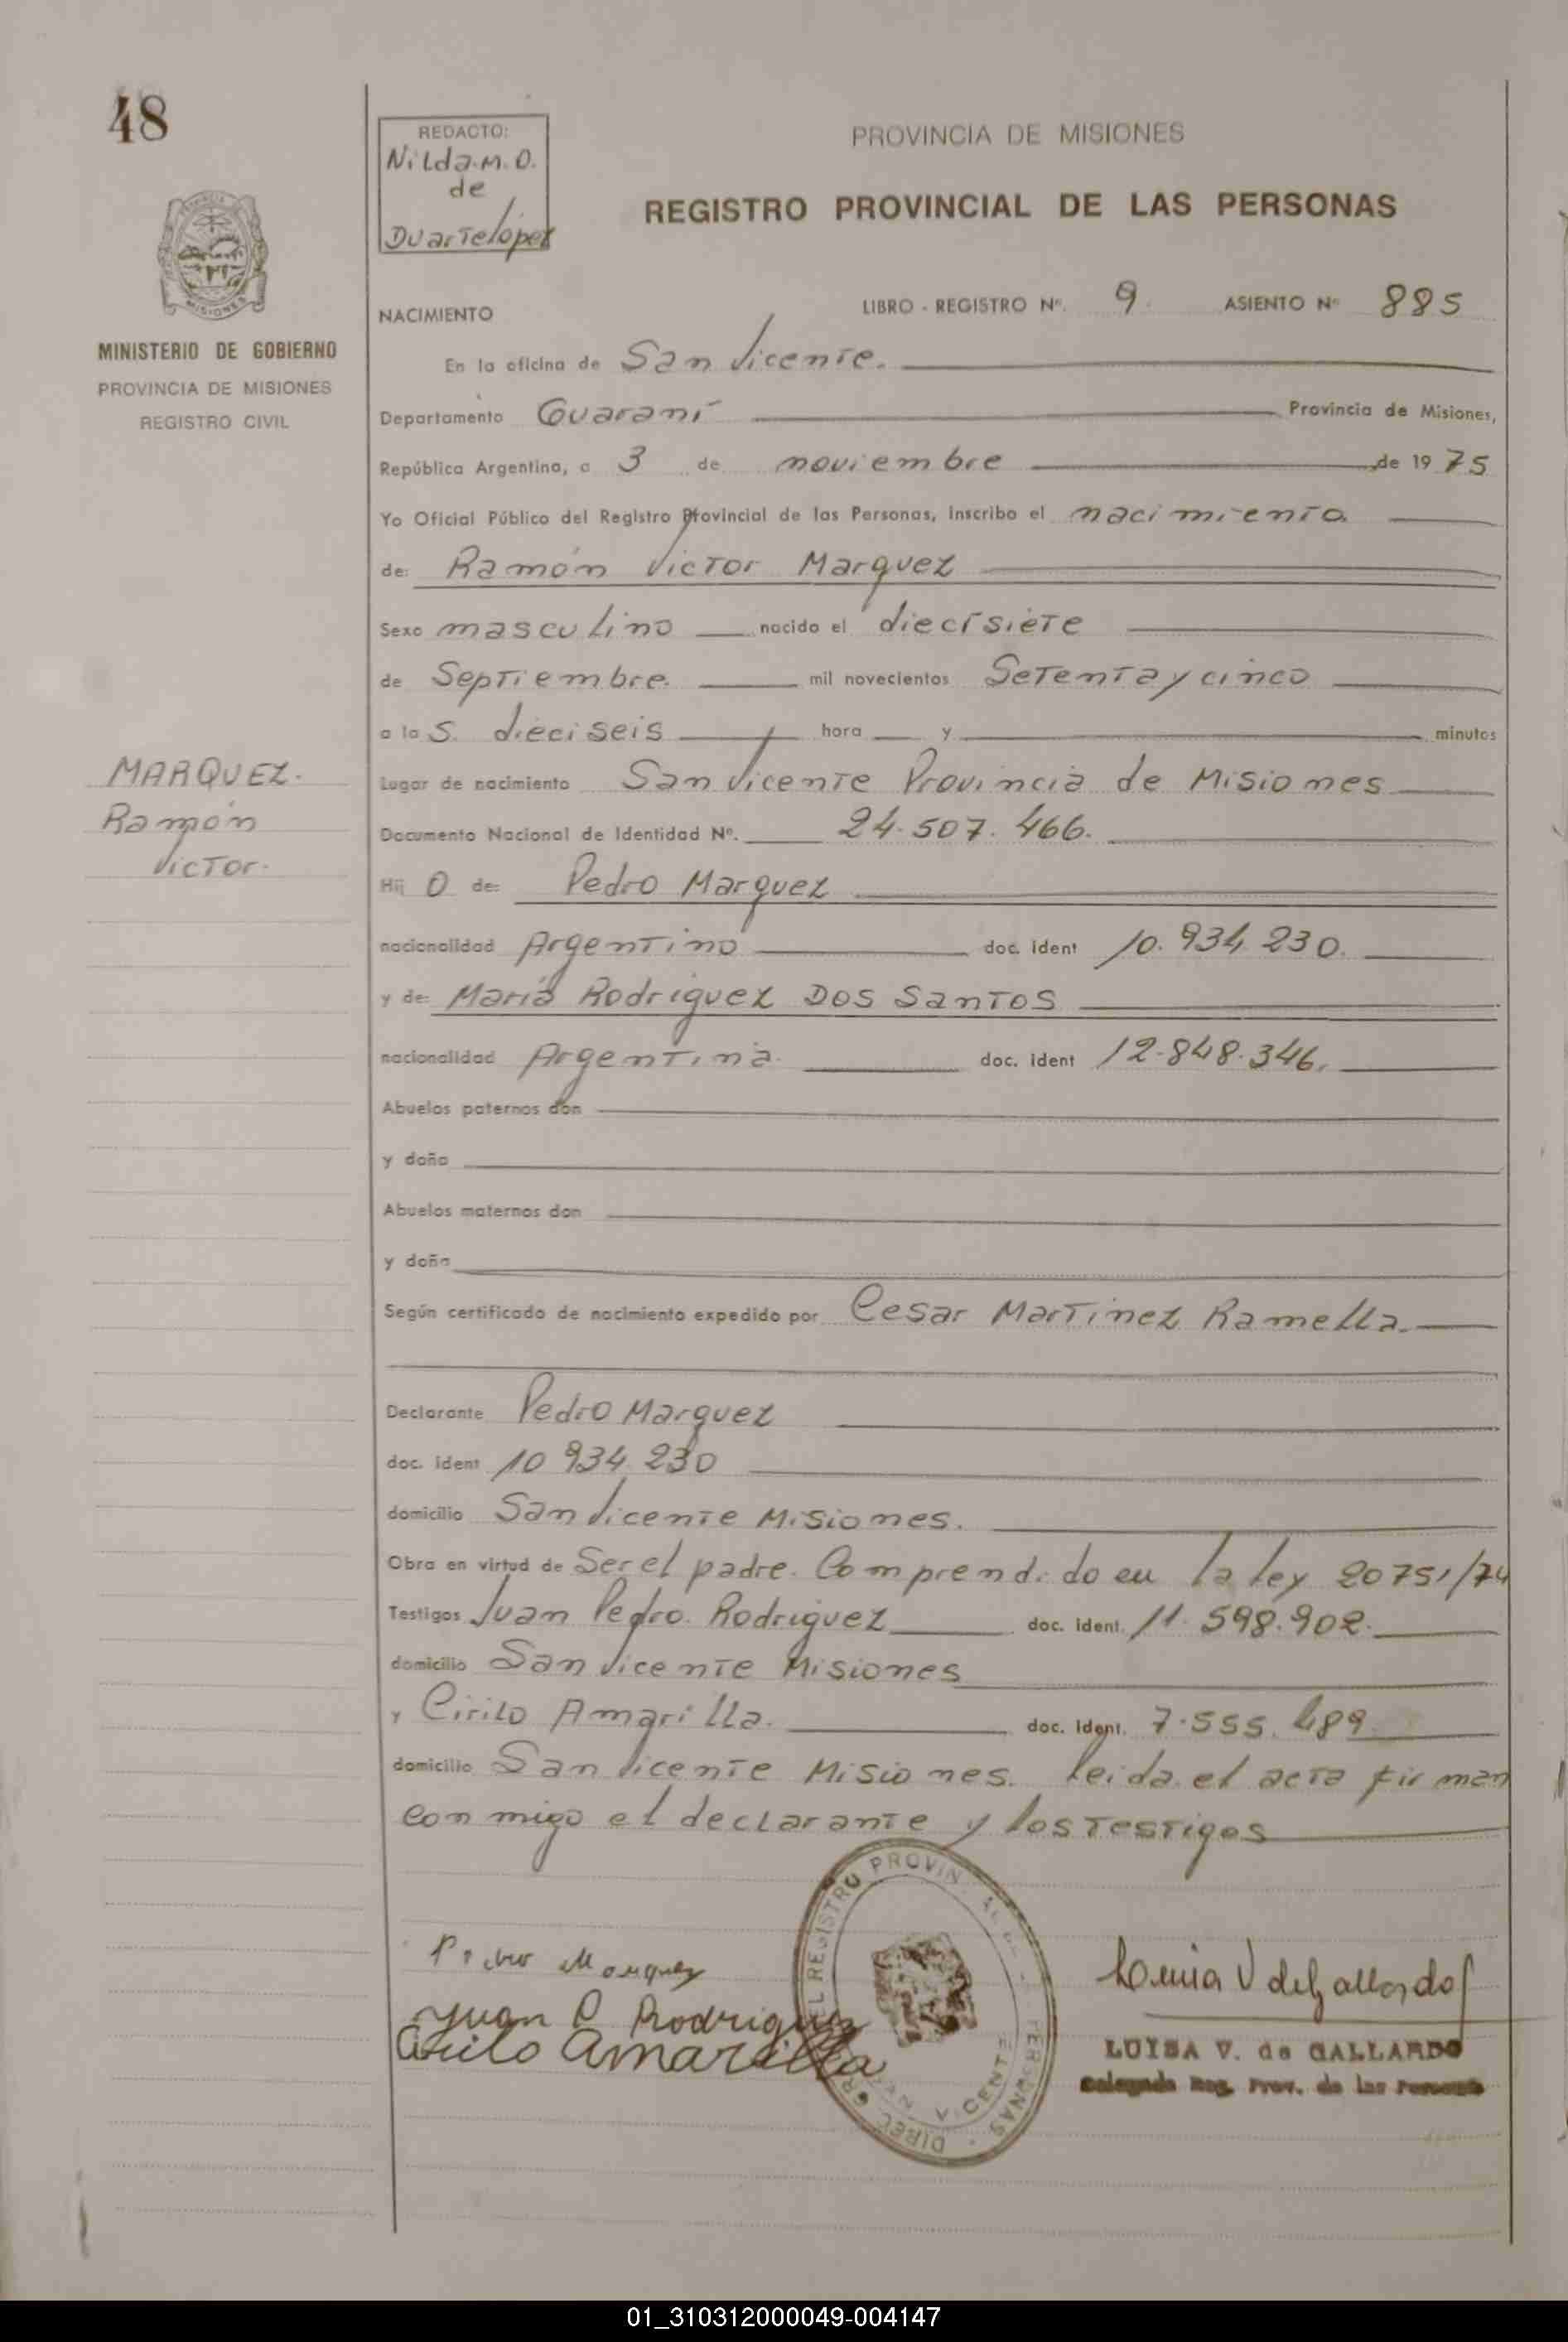 48
REDACTO:
Nilda.M.O.
de
Duarte López
PROVINCIA DE MISIONES
REGISTRO PROVINCIAL DE LAS PERSONAS
MISIONES
MINISTERIO DE GOBIERNO
PROVINCIA DE MISIONES
REGISTRO CIVIL
NACIMIENTO
LIBRO - REGISTRO Nº. 9. ASIENTO Nº 885
En la oficina de San Vicente.
Departamento Guaraní Provincia de Misiones,
República Argentina, a 3 de noviembre de 1975
Yo Oficial Público del Registro Provincial de las Personas, inscribo el nacimiento
de: Ramón Victor Marquez
Sexo masculino nacido el diecísiete
de Septiembre. mil novecientos Setenta y cinco
a la s. dieciseis hora y minutos
MARQUEZ.
Ramón
Victor.
Lugar de nacimiento San Vicente Provincia de Misiones
Documento Nacional de Identidad Nº. 24.507.466.
Hij o de: Pedro Marquez
nacionalidad Argentino doc. ident 10.934.230.
y de: María Rodriguez Dos Santos
nacionalidad Argentina. doc. ident 12.848.346.
Abuelos paternos don
y doña
Abuelos maternos don
y doña
Según certificado de nacimiento expedido por Cesar Martinez Ramella.
Declarante Pedro Marquez
doc. ident 10 934 230
domicilio San Vicente Misiones.
Obra en virtud de Ser el padre. Comprendido en la ley 20751/74
Testigos Juan Pedro. Rodriguez doc. ident. 11.598.902.
domicilio San Vicente Misiones
y Cirilo Amarilla. doc. ident. 7.555.489.
domicilio San Vicente Misiones. Leida el acta firman
con migo el declarante y los Testigos
Pedro Marquez
Juan P Rodriguez
Cirilo Amarilla
Luisa V de Gallardo
LUISA V. de GALLARDO
Delegada Reg. Prov. de las Personas
01_310312000049-004147